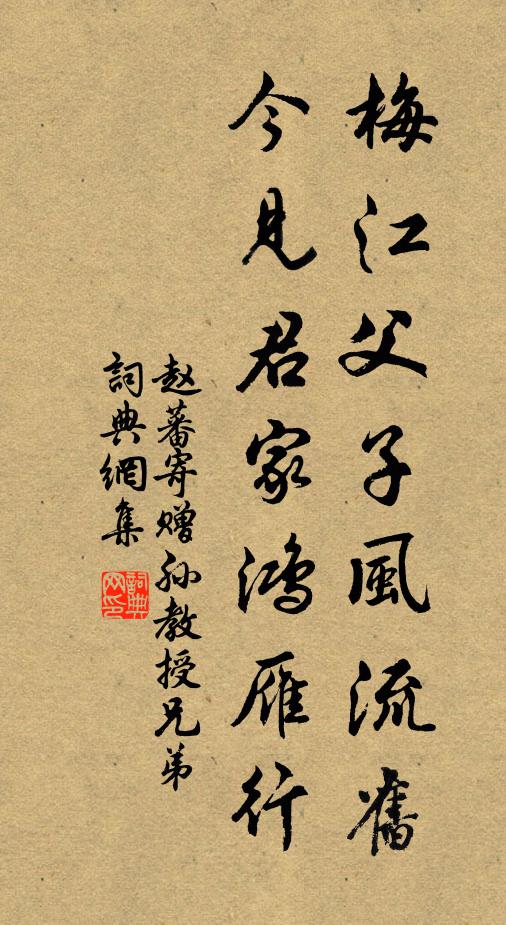 梅江父子風流舊
今見君家鴻雁行
赵蕃寄赠孙教授兄弟
詞典網集
詞典网印